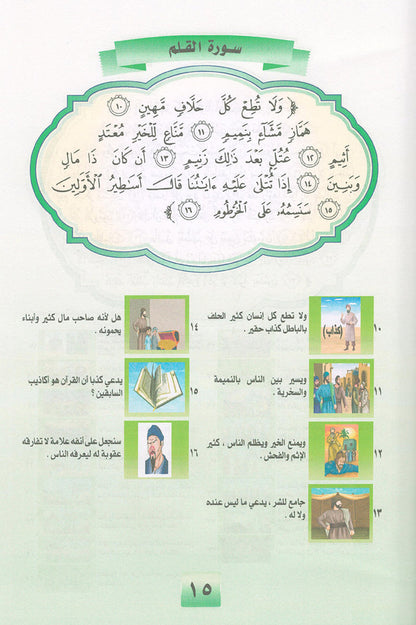 سورة القلم
﴿ وَلَا تُطِعْ كُلَّ حَلَّافٍ مَّهِينٍ ١٠
هَمَّازٍ مَّشَّاءٍ بِنَمِيمٍ ١١ مَّنَّاعٍ لِّلْخَيْرِ مُعْتَدٍ
أَثِيمٍ ١٢ عُتُلٍّ بَعْدَ ذَٰلِكَ زَنِيمٍ ١٣ أَن كَانَ ذَا مَالٍ
وَبَنِينَ ١٤ إِذَا تُتْلَىٰ عَلَيْهِ ءَايَٰتُنَا قَالَ أَسَٰطِيرُ الْأَوَّلِينَ
١٥ سَنَسِمُهُ عَلَى الْخُرْطُومِ ١٦ ﴾
١٠
(كذاب)
ولا تطع كل إنسان كثير الحلف
بالباطل كذاب حقير .
١١
ويسير بين الناس بالنميمة
والسخرية .
١٢
ويمنع الخير ويظلم الناس ، كثير
الإثم والفحش .
١٣
جامع للشر ، يدعي ما ليس عنده
ولا له .
١٤
هل لأنه صاحب مال كثير وأبناء
يحمونه .
١٥
يدعي كذبا أن القرآن هو أكاذيب
السابقين ؟
١٦
سنجعل على أنفه علامة لا تفارقه
عقوبة له ليعرفه الناس .
١٥